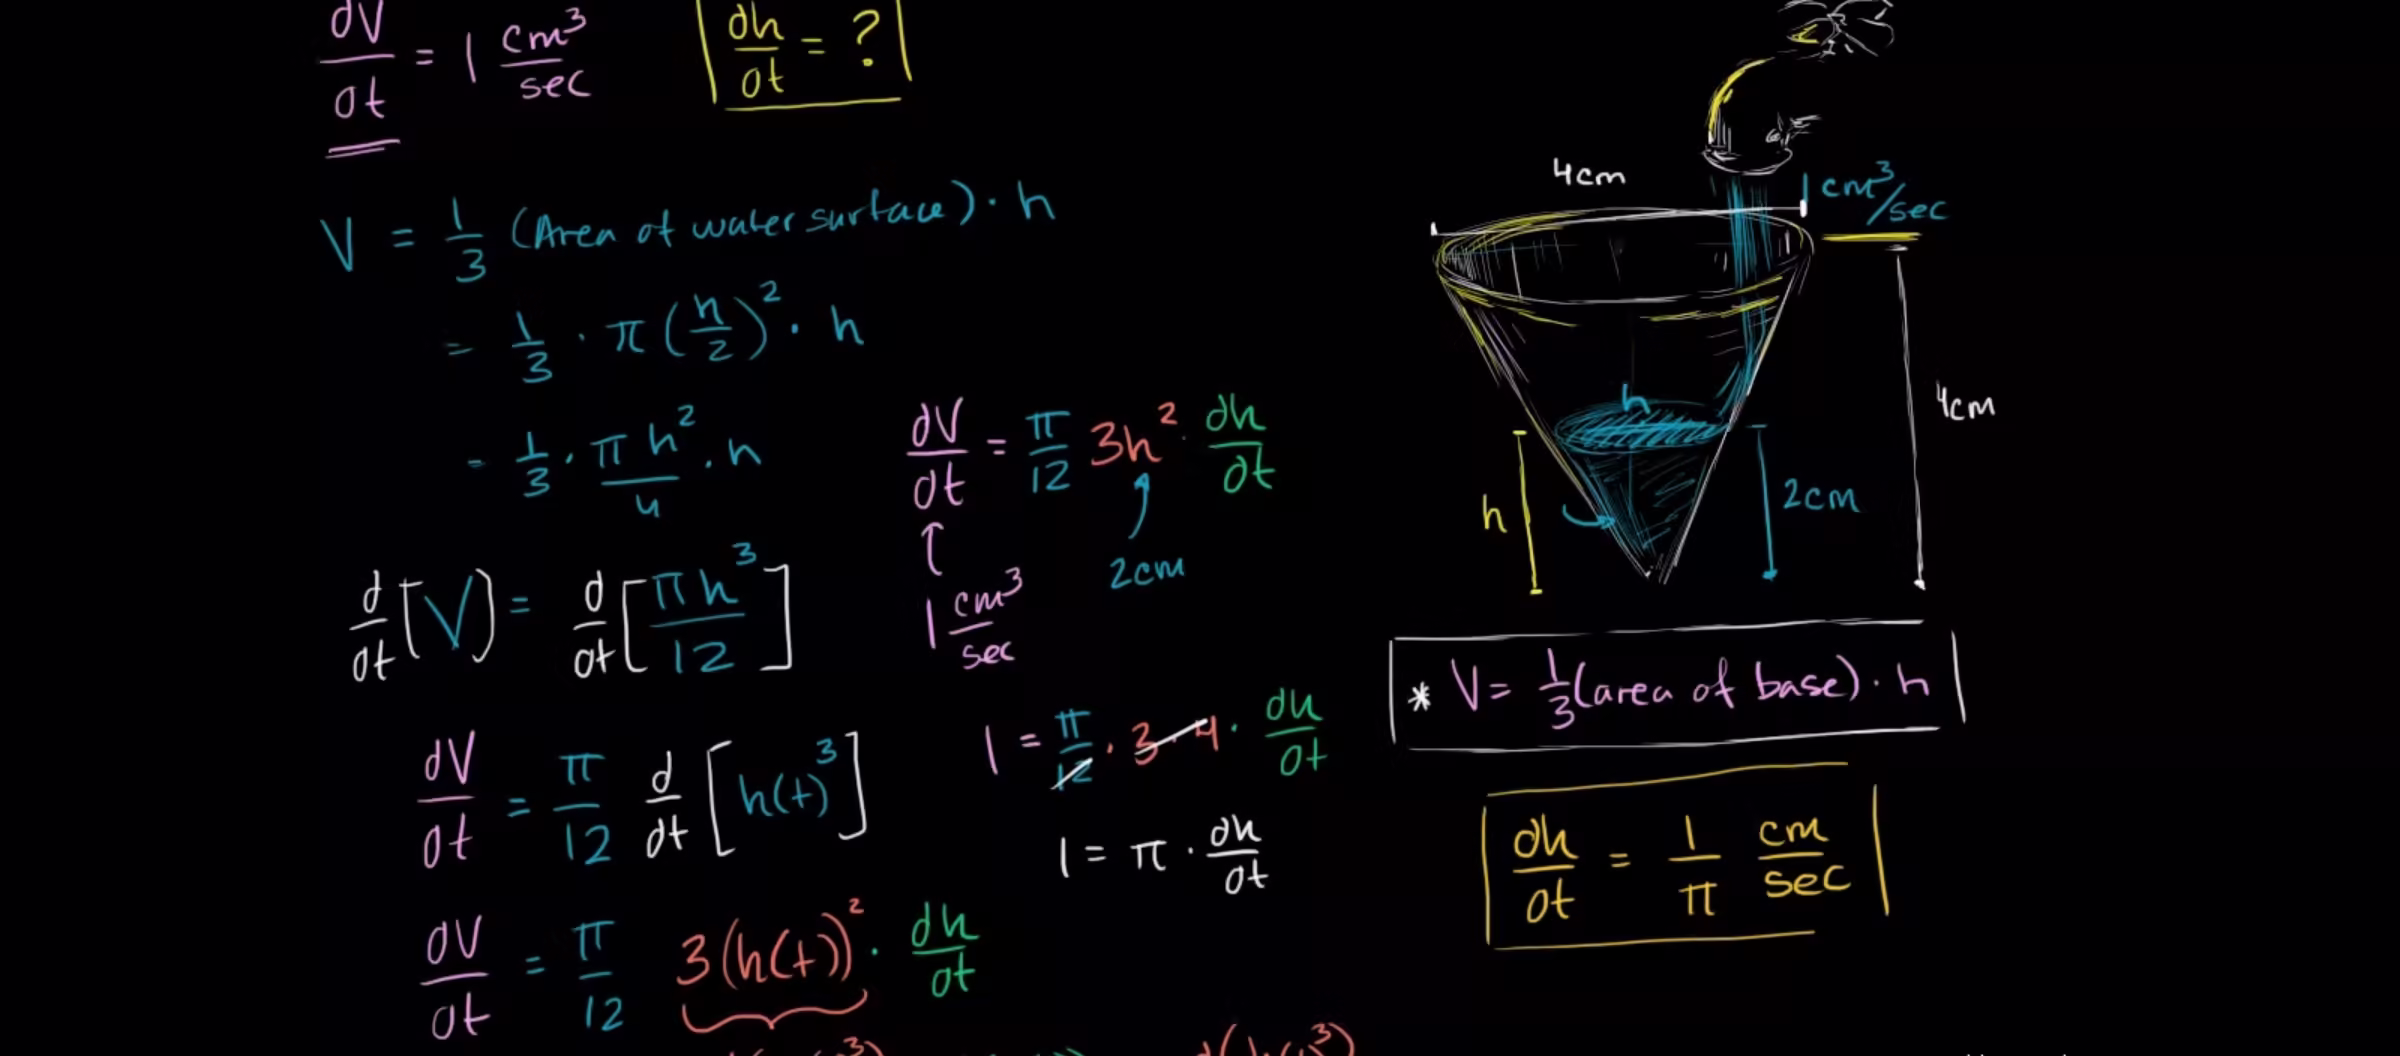 dV/dt = 1 cm³/sec
dh/dt = ?
V = 1/3 (Area of water surface) · h
= 1/3 · π (h/2)² · h
= 1/3 · πh²/4 · h
d/dt [V] = d/dt [πh³/12]
dV/dt = π/12 d/dt [h(t)³]
dV/dt = π/12 3(h(t))² · dh/dt
dV/dt = π/12 3h² · dh/dt
2cm
1 cm³/sec
1 = π/12 · 3 · 4 · dh/dt
1 = π · dh/dt
4cm
1 cm³/sec
h
4cm
h
2cm
* V = 1/3 (area of base) · h
dh/dt = 1/π cm/sec